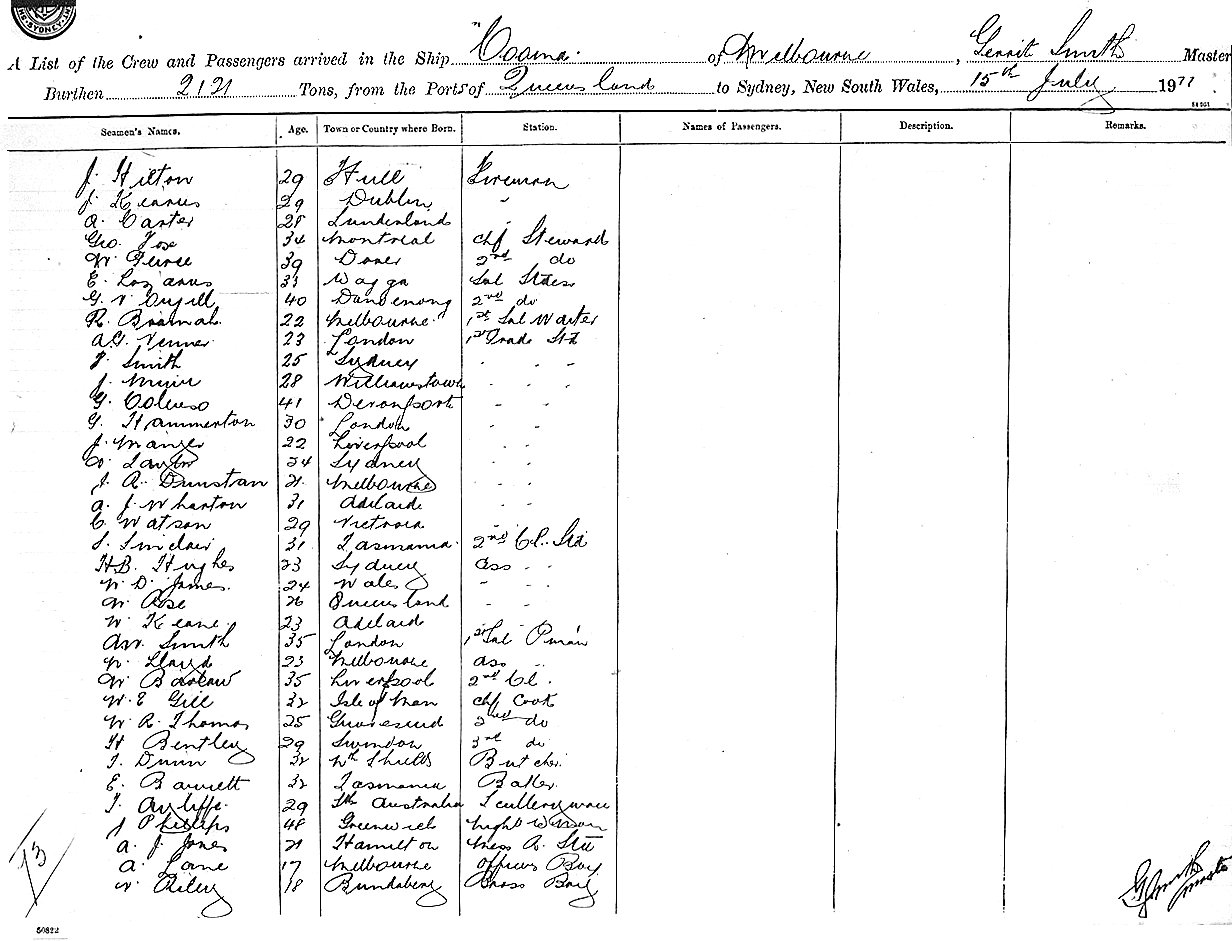 SYDNEY
A List of the Crew and Passengers arrived in the Ship "Cooma. of Melbourne, Gerrit Smith Master
Burthen 2121 Tons, from the Ports of Queensland to Sydney, New South Wales, 15th July 1911
Seamen's Names. Age. Town or Country where Born. Station. Names of Passengers. Description. Remarks.
J. Hilton 29 Hull Fireman
J. Kearns 29 Dublin "
A. Carter 28 Sunderland
Geo. Fox 34 Montreal chf Steward
W. 39 Dover 2nd do
E. Lazarus 33 Wagga Sal Stdess
G. V. 40 Dandenong 2nd do
R. Bramah 22 Melbourne 1st Sal Waiter
A.G. Venner 23 London 1st Grade Std
Smith 25 Sydney - - -
J. Muir 28 Williamstown - - -
G. 41 Devonport - -
G. Hammerton 30 London - -
J. Manger 22 Liverpool - -
Taylor 24 Sydney - -
J. A. Dunstan 21 Melbourne - -
A. J. Wharton 31 Adelaide - -
C. Watson 29 Victoria - -
S. Sinclair 31 Tasmania 2nd Cl. Std
H.B. Hughes 23 Sydney ass - -
W. D. James 24 Wales - - -
W. Rose 26 Queensland - - -
W. Keane 23 Adelaide
A.W. Smith 35 London 1st Sal P'man
W. Lloyd 23 Melbourne ass "
W. Barlow 35 Liverpool 2nd Cl.
W. E Gill 32 Isle of Man chf Cook
W. R. Thomas 25 Gravesend 2nd do
H Bentley 29 Swindon 3rd do
T. Dunn 32 Nth Shields Butcher
E. Barrett 32 Tasmania Baker
T. Ayliffe 29 Sth Australia Scullery man
J Phillips 48 Greenwich Night W man
A. J. Jones 21 Hamilton Mess R. Std
A. Lane 17 Melbourne officers Boy
W Riley 18 Bundaberg Brass Boy
73
G Smith Master
50822